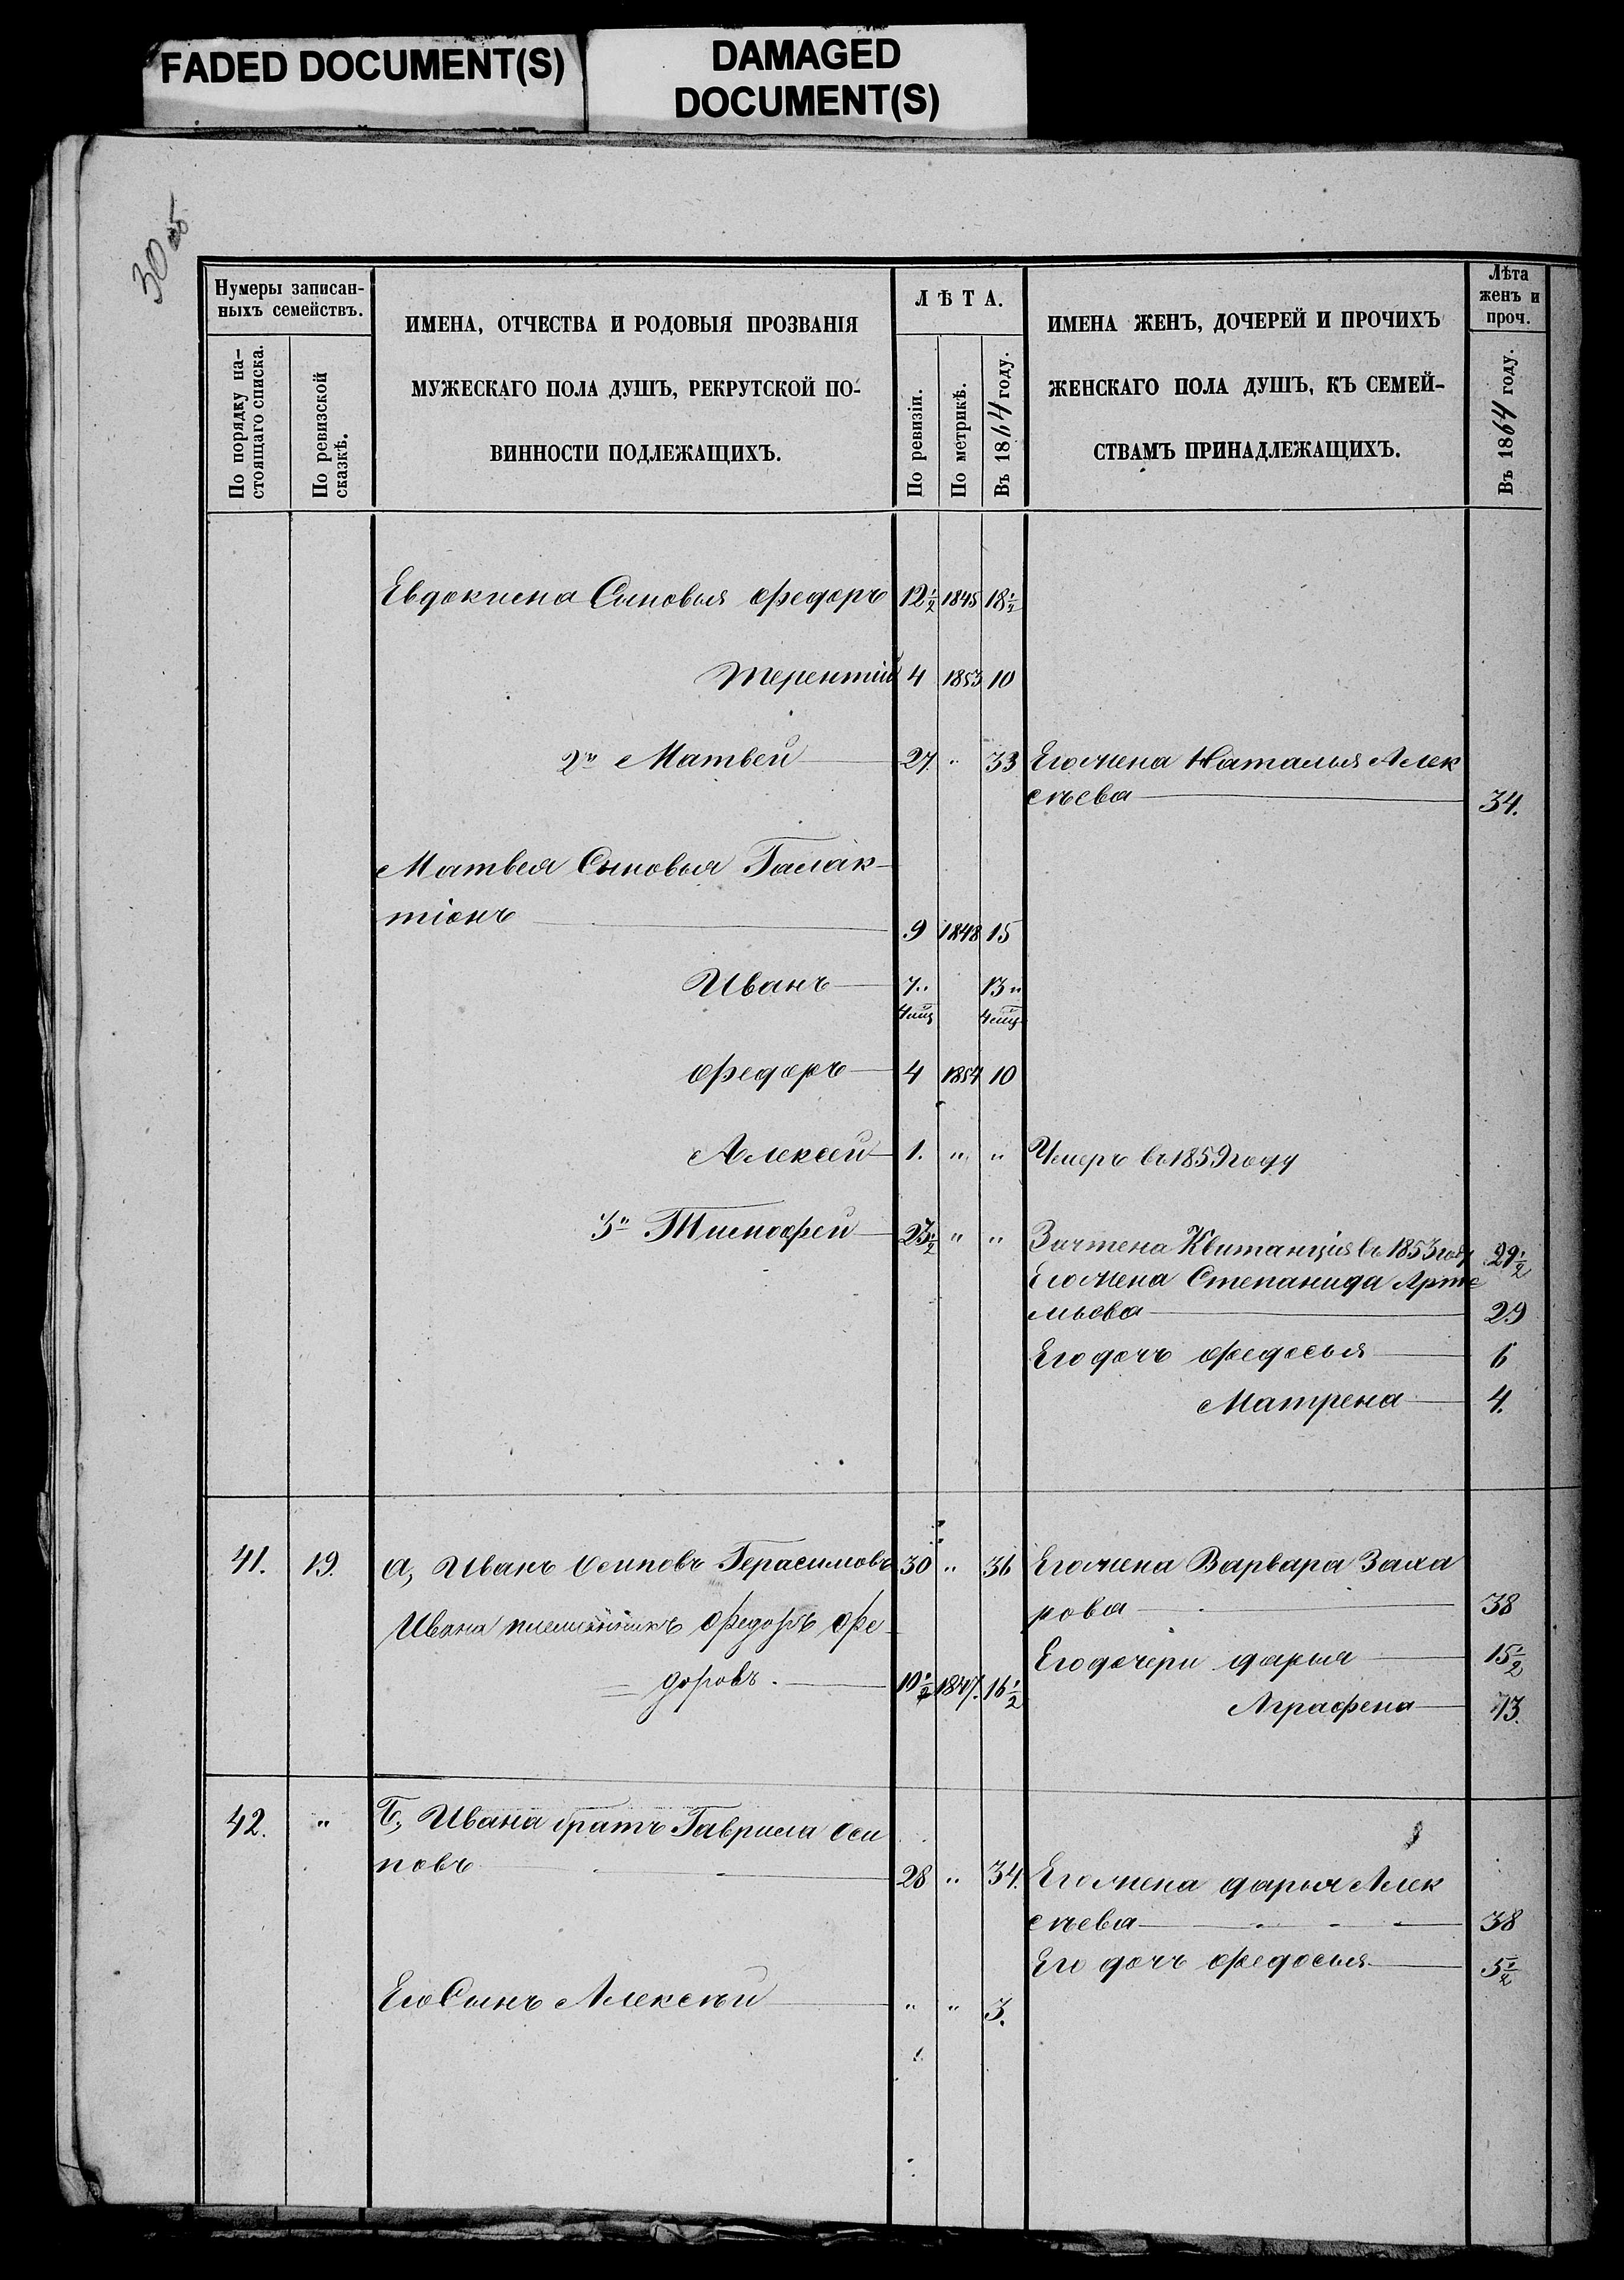 FADED DOCUMENT(S)
DAMAGED
DOCUMENT(S)
30 об
Нумеры записан-
ныхъ семействъ.
По порядку на-
стоящаго списка.
По ревизской
сказкѣ.
ИМЕНА, ОТЧЕСТВА И РОДОВЫЯ ПРОЗВАНІЯ
МУЖЕСКАГО ПОЛА ДУШЪ, РЕКРУТСКОЙ ПО-
ВИННОСТИ ПОДЛЕЖАЩИХЪ.
ЛѢТА.
По ревизіи.
По метрикѣ.
Въ 1864 году.
ИМЕНА ЖЕНЪ, ДОЧЕРЕЙ И ПРОЧИХЪ
ЖЕНСКАГО ПОЛА ДУШЪ, КЪ СЕМЕЙ-
СТВАМЪ ПРИНАДЛЕЖАЩИХЪ.
Лѣта
женъ и
проч.
Въ 1864 году.
Евдокима Сыновья Федоръ 12½ 1845 18½
Терентий 4 1853 10
2й Матвей 27 " 33 Его жена Наталья Алек
сѣева 34.
Матвея Сыновья Галак-
тіонъ 9 1848 15
Иванъ 7" 13"
4 мц 4 мц
Федоръ 4 1854 10
Алексей 1. " " Умеръ въ 1859 году
3й Тимофей 23½ " " Зачтена Квитанція въ 1853 году 29½
Его жена Степанида Арте
мьева 29
Его дочь Федосья 6
Матрена 4.
41. 19. а, Иванъ Осиповъ Герасимовъ 30 " 36 Его жена Варвара Заха
рова 38
Ивана племянникъ Федоръ Фе-
Его дочери Дарья 15½
доровъ. 10½ 1847. 16½
Аграфена 13.
42. " Б, Ивана братъ Гаврила Оси
повъ 28 " 34. Его жена Дарья Алек
сѣева 38
Его дочь Федосья 5½
Его Сынъ Алексѣй " " 3.